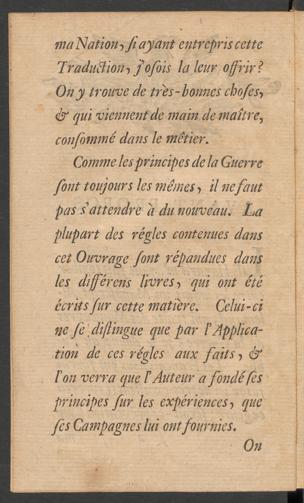 ma Nation, ſi ayant entrepris cette
Traduction, j'oſois la leur offrir?
On y trouve de très-bonnes choſes,
& qui viennent de main de maître,
conſommé dans le métier.
Comme les principes de la Guerre
ſont toujours les mêmes, il ne faut
pas s'attendre à du nouveau. La
plupart des régles contenues dans
cet Ouvrage ſont répandues dans
les différens livres, qui ont été
écrits ſur cette matière. Celui-ci
ne ſe diſtingue que par l'Applica-
tion de ces régles aux faits, &
l'on verra que l'Auteur a fondé ſes
principes ſur les expériences, que
ſes Campagnes lui ont fournies.
On